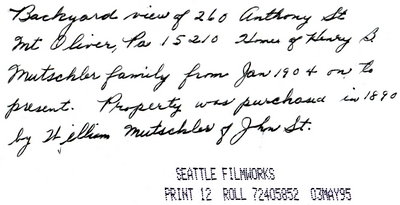 Backyard view of 260 Anthony St
Mt Oliver, Pa 15210 Home of Henry G
Mutschler family from Jan 1904 on to
present. Property was purchased in 1890
by William Mutschler of John St.
SEATTLE FILMWORKS
PRINT 12 ROLL 72405852 03MAY95